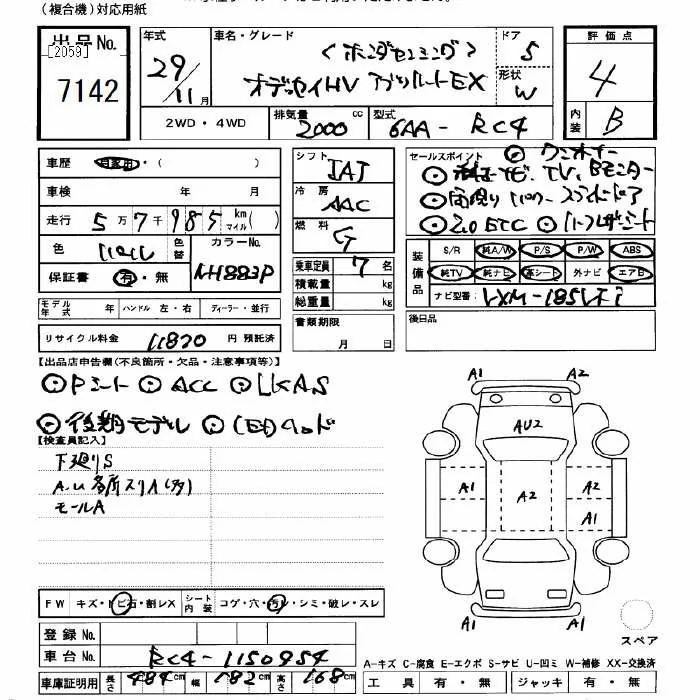 (複合機)対応用紙
出品No.
[2059]
7142
年式 29/11月
車名・グレード <ホンダセンシング>
オデッセイHV アブソルートEX
ドア 5
形状 W
評価点 4
内装 B
2WD・4WD
排気量 2000 cc
型式 6AA-RC4
車歴 自家用・( )
車検 年 月
走行 5万7千985 km マイル ( )
色 パール 色替 カラーNo. NH883P
保証書 有・無
シフト IAT
冷房 AAC
燃料 G
乗車定員 7名
積載量 kg
総重量 kg
セールスポイント ◎ワンオーナー
◎純正ナビ、TV、Bモニター
◎両側パワースライドドア
◎2.0 ETC ◎ハーフレザーシート
装備品 S/R 純A/W P/S P/W ABS
純TV 純ナビ 革シート 外ナビ エアB
ナビ型番 VXM-185VFi
モデル年式 年 ハンドル 左・右 ディーラー・並行
リサイクル料金 11820 円 預託済
書類期限 月 日
後日品
【出品店申告欄(不良箇所・欠品・注意事項等)】
◎Pシート ◎ACC ◎LKAS
◎後期モデル ◎LEDヘッド
【検査員記入】
下廻りS
A.U多所スリキズ(多)
モールA
A1 A2
AU2
A1 A2 A2
A1
A1 A1
スペア
FW キズ・トビ石・割レX シート内装 コゲ・穴・汚レ・シミ・破レ・スレ
登録No.
車台No. RC4-1150954
車庫証明用 長さ 484cm 幅 182cm 高さ 168cm
A-キズ C-腐食 E-エクボ S-サビ U-凹ミ W-補修 XX-交換済
工具 有・無 ジャッキ 有・無